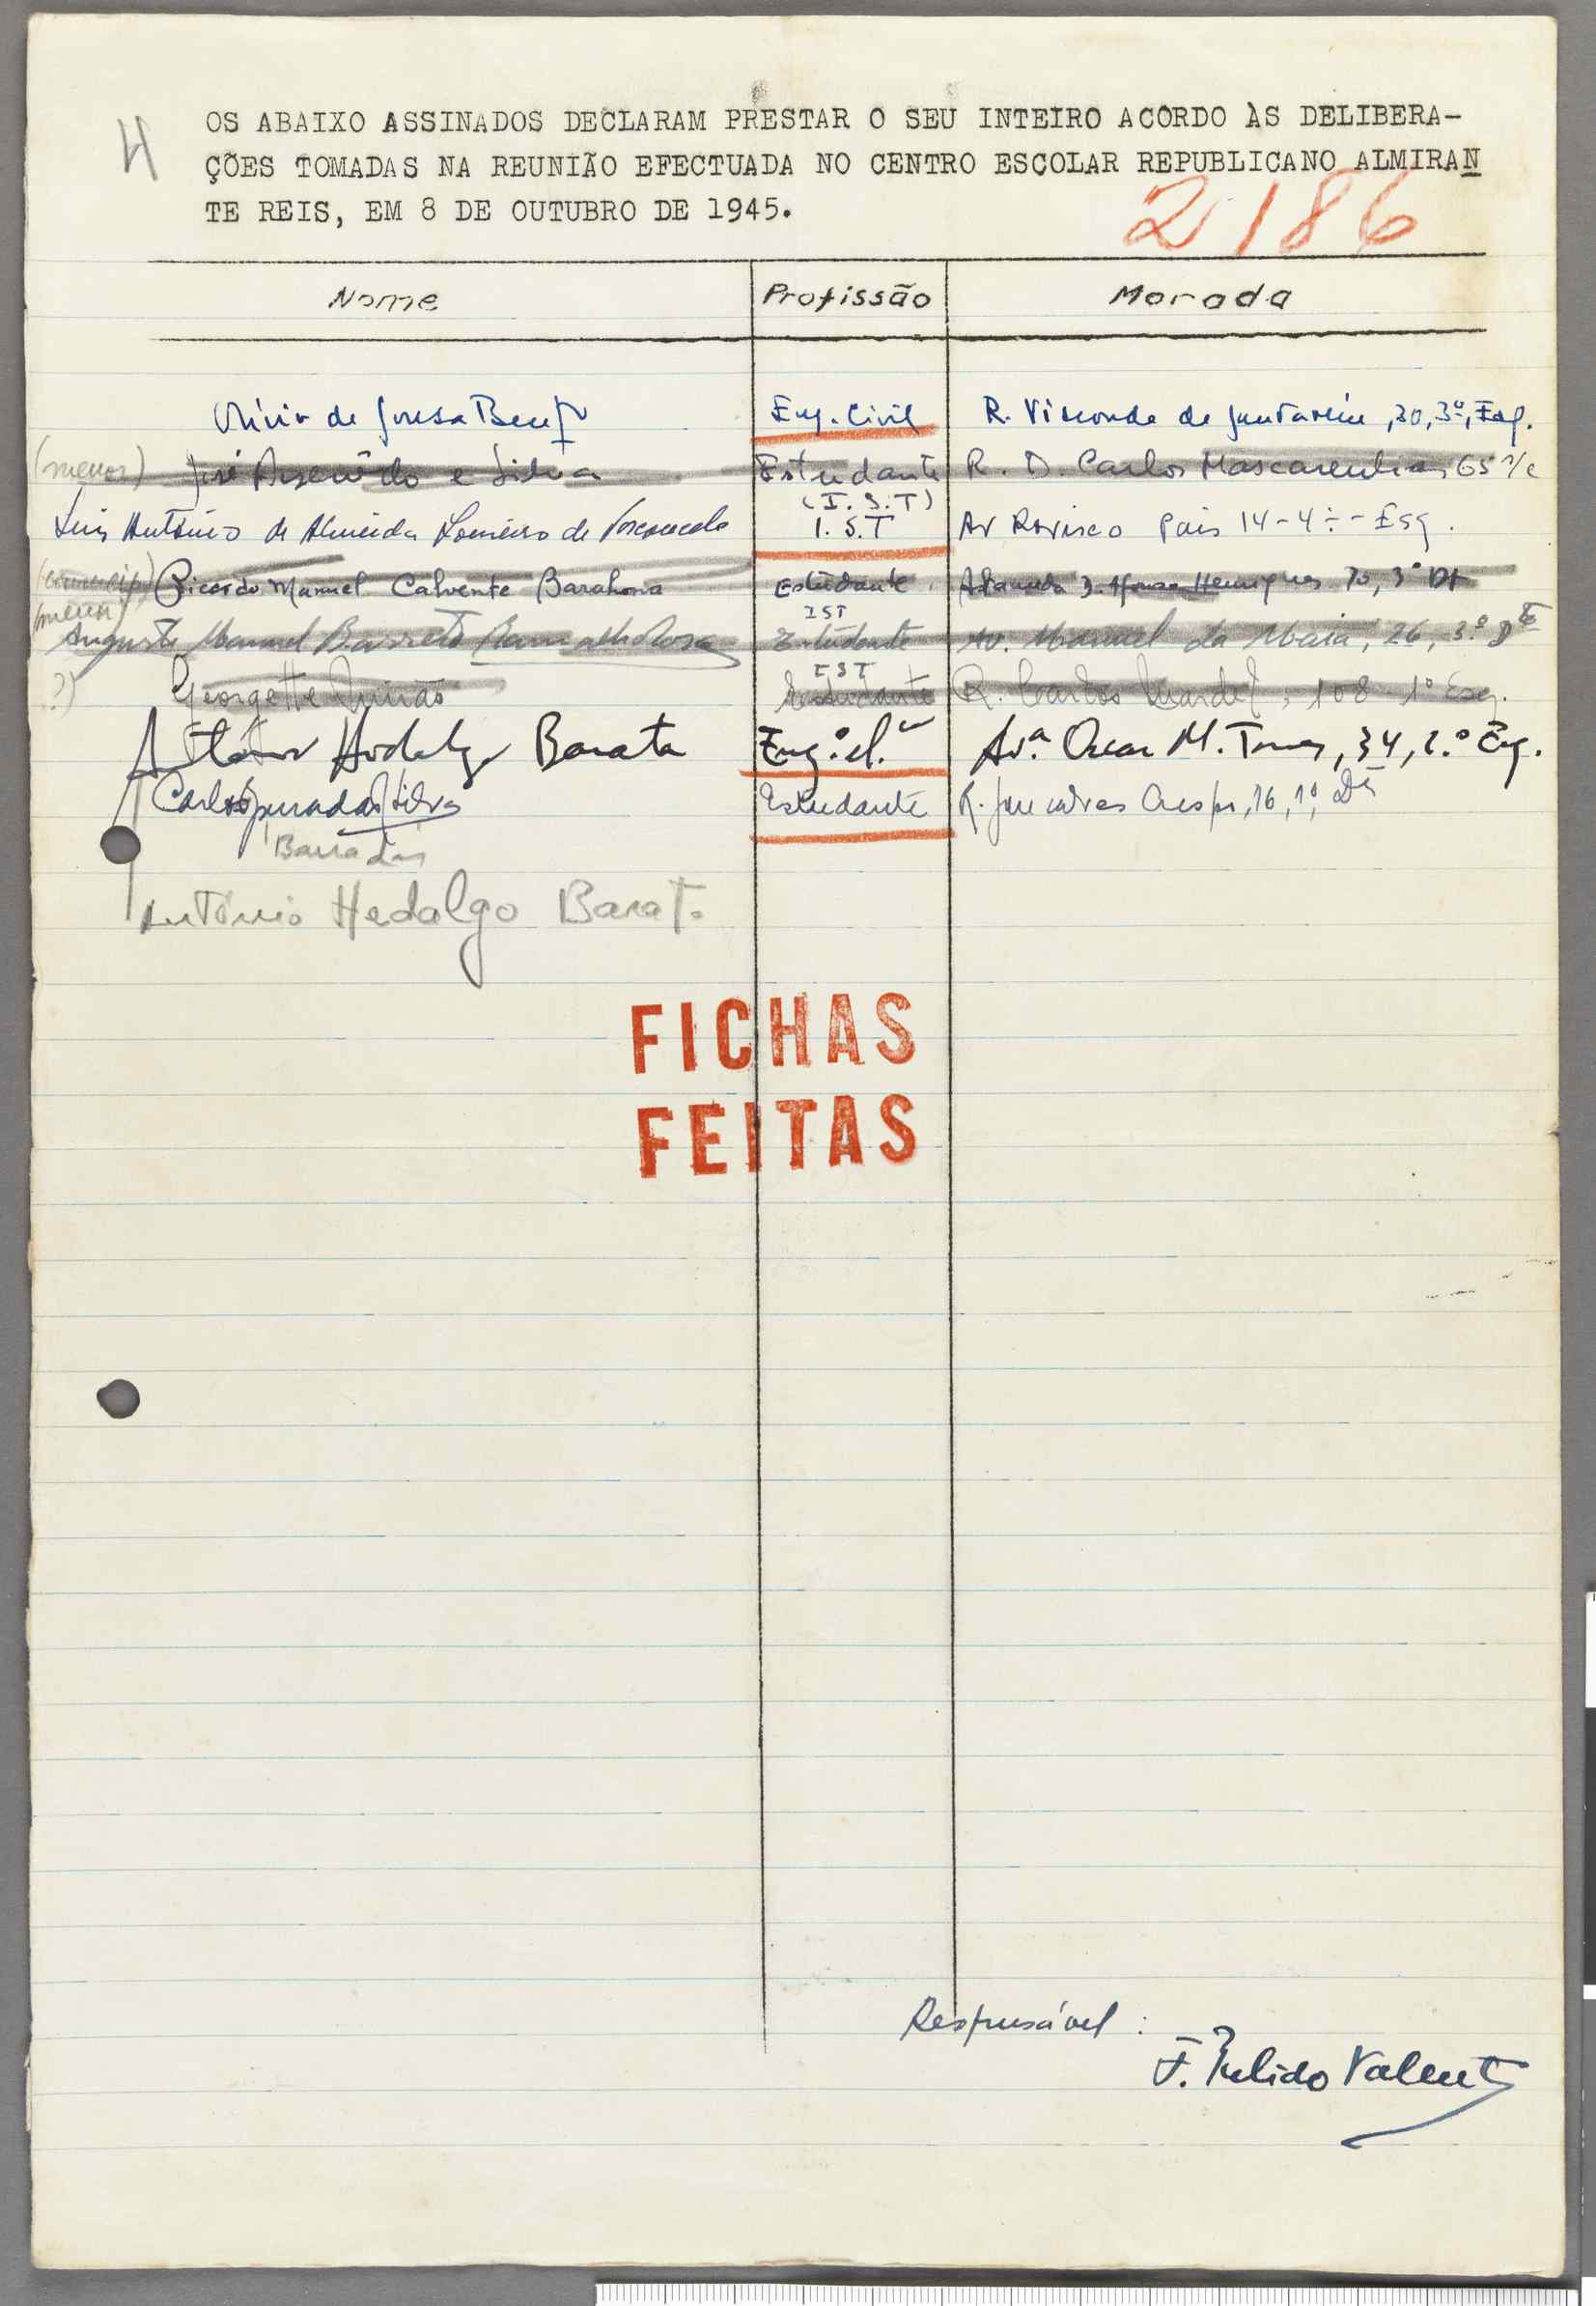 4
OS ABAIXO ASSINADOS DECLARAM PRESTAR O SEU INTEIRO ACORDO ÀS DELIBERA-
ÇÕES TOMADAS NA REUNIÃO EFECTUADA NO CENTRO ESCOLAR REPUBLICANO ALMIRAN
TE REIS, EM 8 DE OUTUBRO DE 1945.
2186
Nome Profissão Morada
de Sousa Eng. Civil R. Visconde de Santarém, 30, 3º, Esq.
(menor) José Azevêdo e Silva Estudante R. D. Carlos Mascarenhas 65 r/c
(I.S.T)
Luis António de Almeida Loureiro de Vasconcelos I.S.T Av Rovisco Pais 14-4º-Esq.
Ricardo Manuel Calvente Barahona Estudante Alameda D. Afonso Henriques 70, 3º Dt
IST
(menor)
Augusto Manuel Barreto Ramalho Rosa Estudante Av. Manuel da Maia, 26, 3º Dto
IST
?) Georgette Estudante R. Carlos Mardel, 108-1º Esq.
António Hidalgo Barata Eng.º Av.ª Oscar M. Torres, 34, 2.º Esq.
Carlos da Silva Estudante R. Gonçalves Crespo, 16, 1º, Dt
Barradas
António Hedalgo Barata
FICHAS
FEITAS
Responsável:
F. Pulido Valente